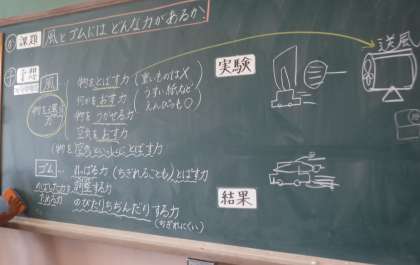 課題 風とゴムにはどんな力があるか
予想
風 物をとばす力 (重いものは×
何かをおす力 うすい紙など
物をうかせる力 えんぴつも○)
空気をおす力
(物を空気といっしょにとばす力
物を運ぶ力
ゴム… ひっぱる力(ちぎれることも)とばす力
のびたりちぢんだりする力
(ちぎれにくい)
実験
送風
結果